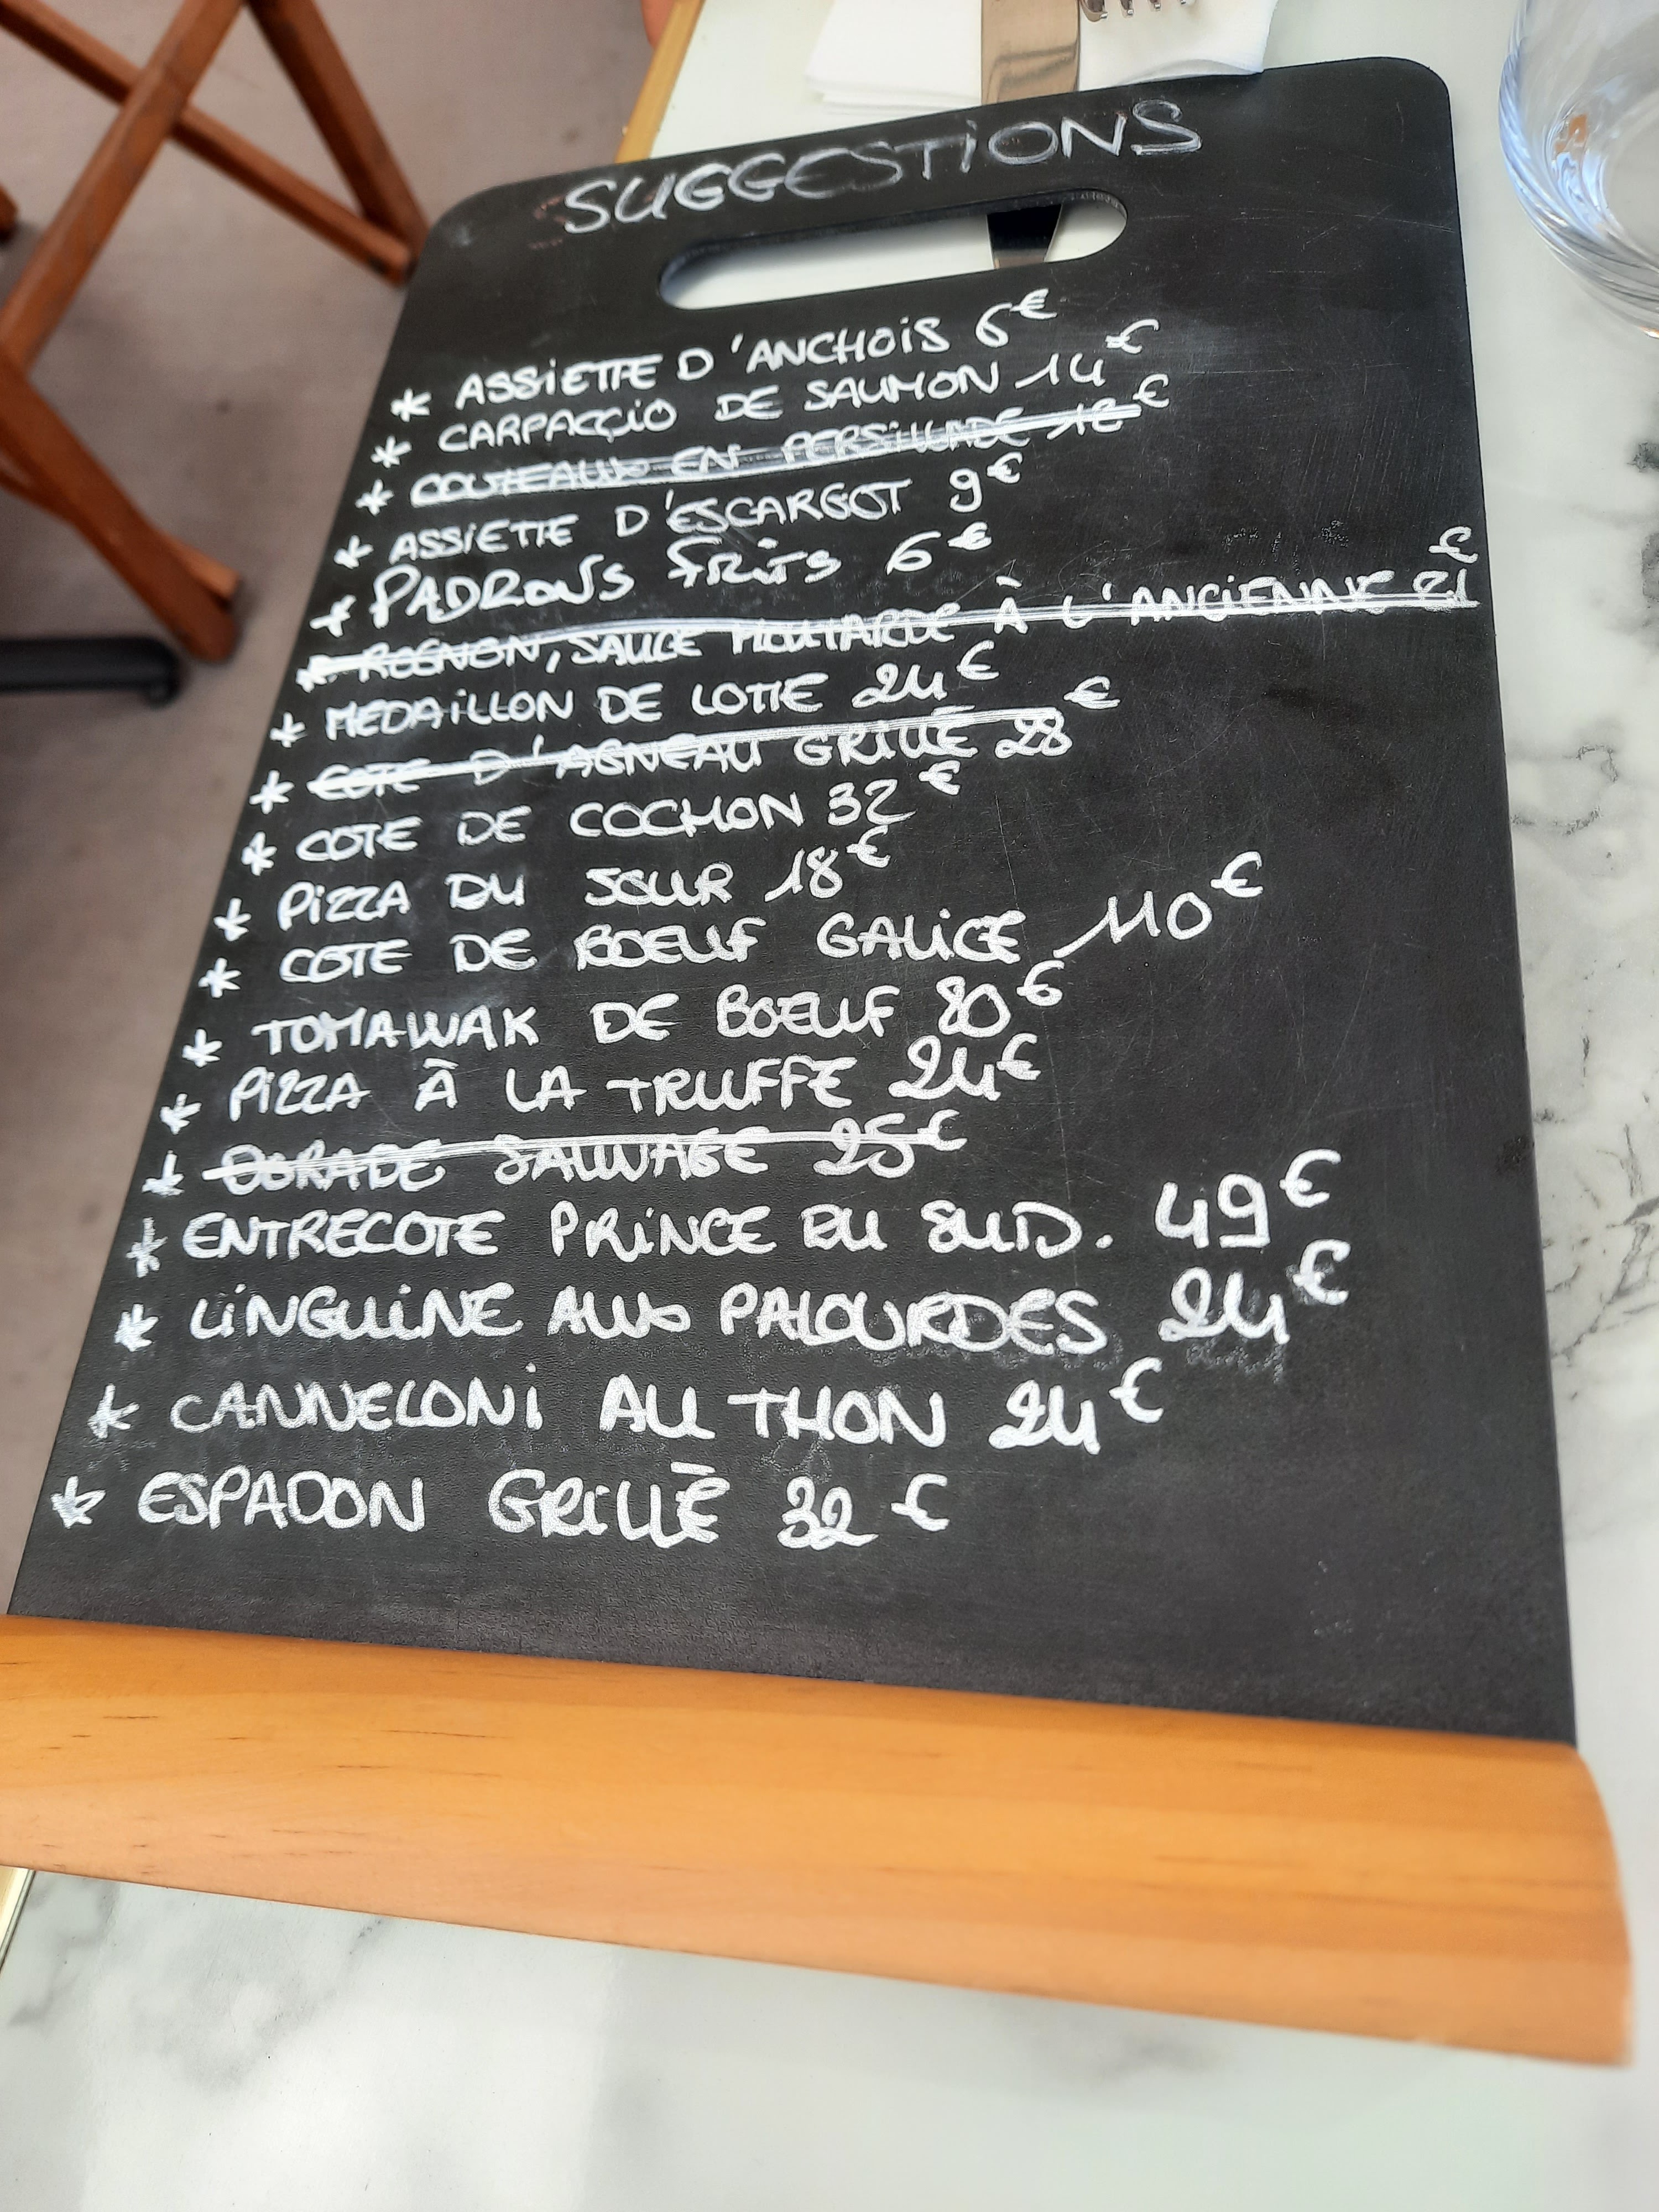 SUGGESTIONS
* ASSIETTE D'ANCHOIS 6€
* CARPAÇCIO DE SAUMON 14€
* COUTEAUX EN PERSILLADE 12€
* ASSIETTE D'ESCARGOT 9€
* PADRONS FRITS 6€
* ROGNON, SAUCE MOUTARDE À L'ANCIENNE 21€
* MEDAILLON DE LOTTE 24€
* COTE D'AGNEAU GRILLÉ 28€
* COTE DE COCHON 32€
* PIZZA DU JOUR 18€
* COTE DE BOEUF GALICE 110€
* TOMAWAK DE BOEUF 80€
* PIZZA À LA TRUFFE 24€
* DORADE SAUVAGE 25€
* ENTRECOTE PRINCE DU SUD. 49€
* LINGUINE AUX PALOURDES 24€
* CANNELONI AU THON 24€
* ESPADON GRILLÉ 32€